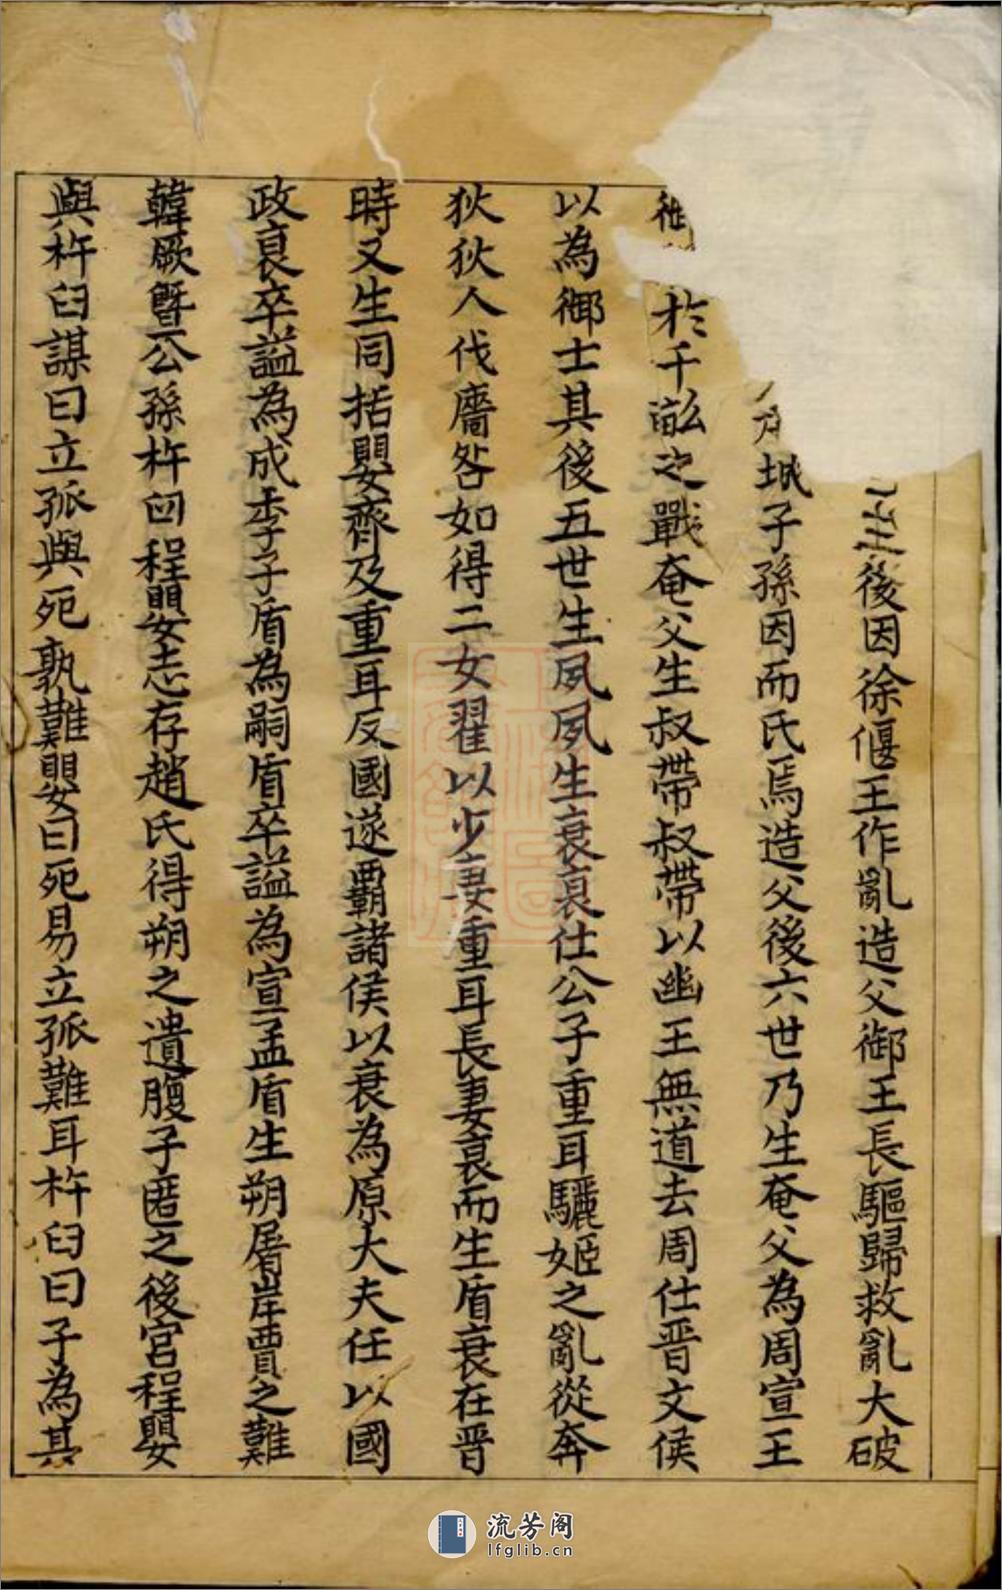 王後因徐偃王作亂造父御王長驅歸救亂大破
城子孫因而氏焉造父後六世乃生奄父為周宣王
於千畝之戰奄父生叔帶叔帶以幽王無道去周仕晋文侯
以為御士其後五世生夙夙生衰衰仕公子重耳驪姬之亂從奔
狄狄人伐廧咎如得二女翟以少妻重耳長妻衰而生盾衰在晋
時又生同括嬰齊及重耳反國遂覇諸侯以衰為原大夫任以國
政衰卒謚為成季子盾為嗣盾卒謚為宣孟盾生朔屠岸賈之難
韓厥曁公孫杵臼程嬰志存趙氏得朔之遺腹子匿之後宮程嬰
與杵臼謀曰立孤與死孰難嬰曰死易立孤難耳杵臼曰子為其
流芳阁
lfglib.cn